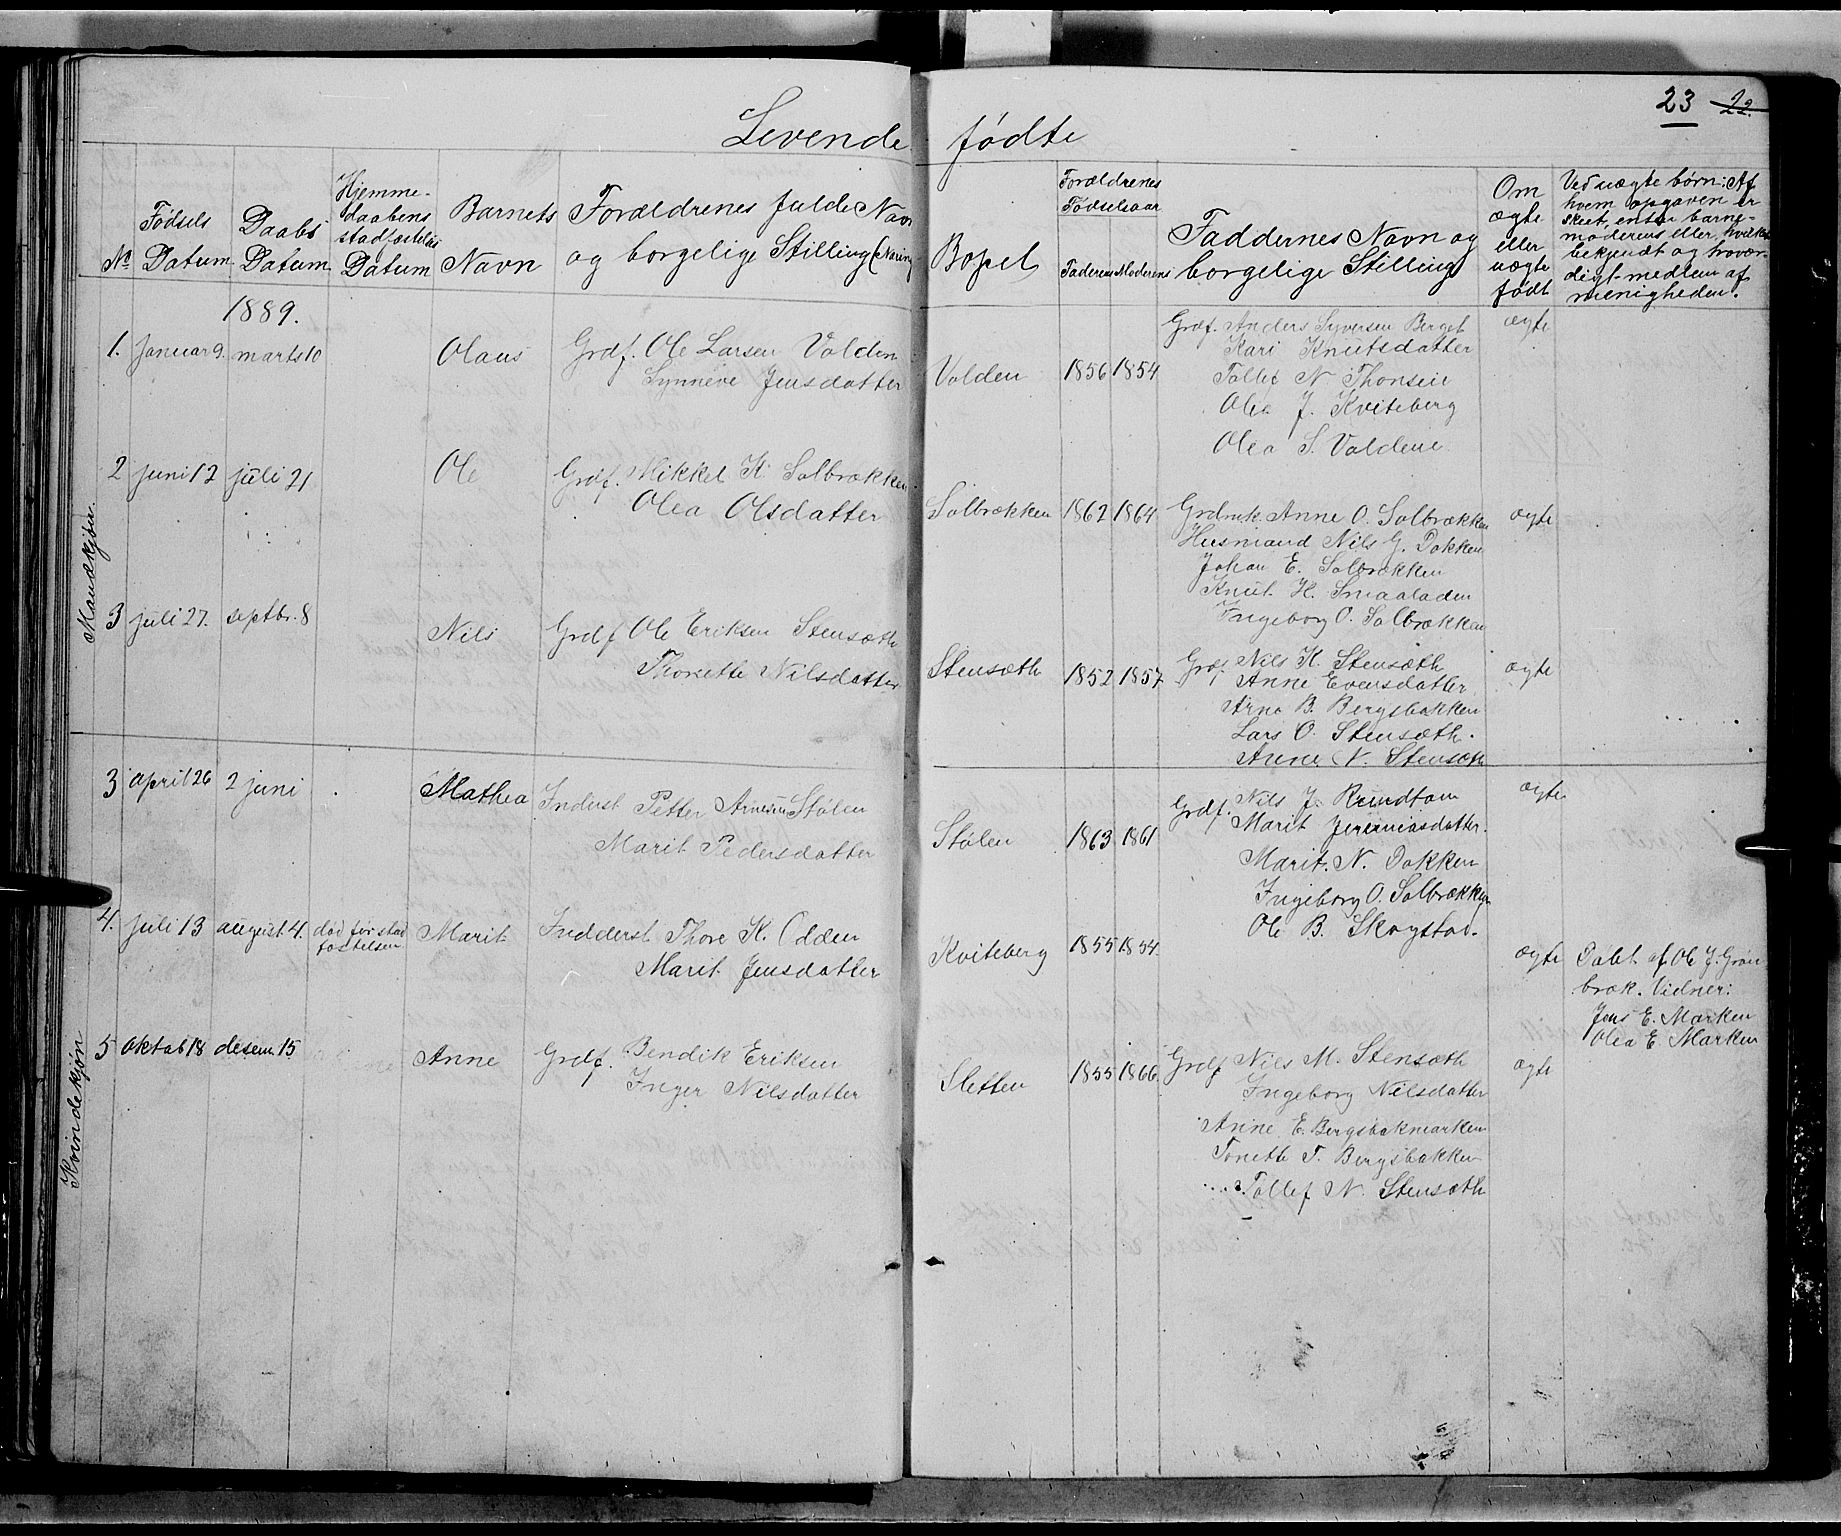 23 22.
Levende fødte
No
Fødsels Datum
Daabs Datum
Hjemme-
daabens
stadfæstelses
Datum
Barnets
Navn
Forældrenes fulde Navn
og borgelige Stilling (Næring
Bopel
Forældrenes
Fødselsaar
Faderens Moderens
Faddernes Navn og
borgelige Stilling
Om
ægte
eller
uægte
født
Ved uægte børn: Af
hvem opgaven er
skeet, enten barne-
moderens eller hvilket
bekjendt og trovær-
digt medlem af
menigheden.
Mandkjøn
1889.
1. Januar 9. marts 10 Olaus Grdf. Ole Larsen Volden
Synneve Jensdatter
Volden 1856 1854
Grdf. Anders Syversen Berget
Kari Knutsdatter
Tollef N Thonsein
Olea J. Kviteberg
Olea S. Voldene
ægte
2 juni 12 juli 21 Ole Grdf. Mikkel K. Solbrækken
Olea Olsdatter
Solbrækken 1862 1864
Grdmk. Anne O. Solbrækken
Husmand Nils G. Dokken
Johan E. Solbrækken
Knut H. Smaaladen
Ingeborg O. Solbrækken
ægte
3 juli 27. septbr. 8 Nils Grdf Ole Eriksen Stensæth
Thorette Nilsdatter
Stensæth 1852 1857
Grdf Nils K. Stensæth
Anne Evensdatter
Arne B. Bergsbakken
Lars O. Stensæth.
Anne N. Stensæth
ægte
Kvindekjøn
3 april 26 2 juni Mathea Inderst Petter Arnesen Stølen
Marit Pedersdatter
Stølen 1863 1861
Grdf. Nils J. Rundtom
Marit Jeremiasdatter.
Marit. N. Dokken
Ingeborg O. Solbrækken
Ole B. Skogstad.
ægte
4. juli 13 august 4. død før stad
fæstelsen Marit Indderst Thore K. Odden
Marit Jensdatter
Kviteberg 1855 1854
ægte
Døbt af Ole J. Grøn
bræk. Vidner:
Jens E. Marken
Olea E. Marken
5 oktob 18 desem. 15 Anne Grdf. Bendik Eriksen
Inger Nilsdatter
Sletten 1855 1866
Grdf Nils M. Stensæth
Ingeborg Nilsdatter
Anne E. Bergsbakmarken
Tonette T. Bergsbakken
Tollef N. Stensæth
ægte